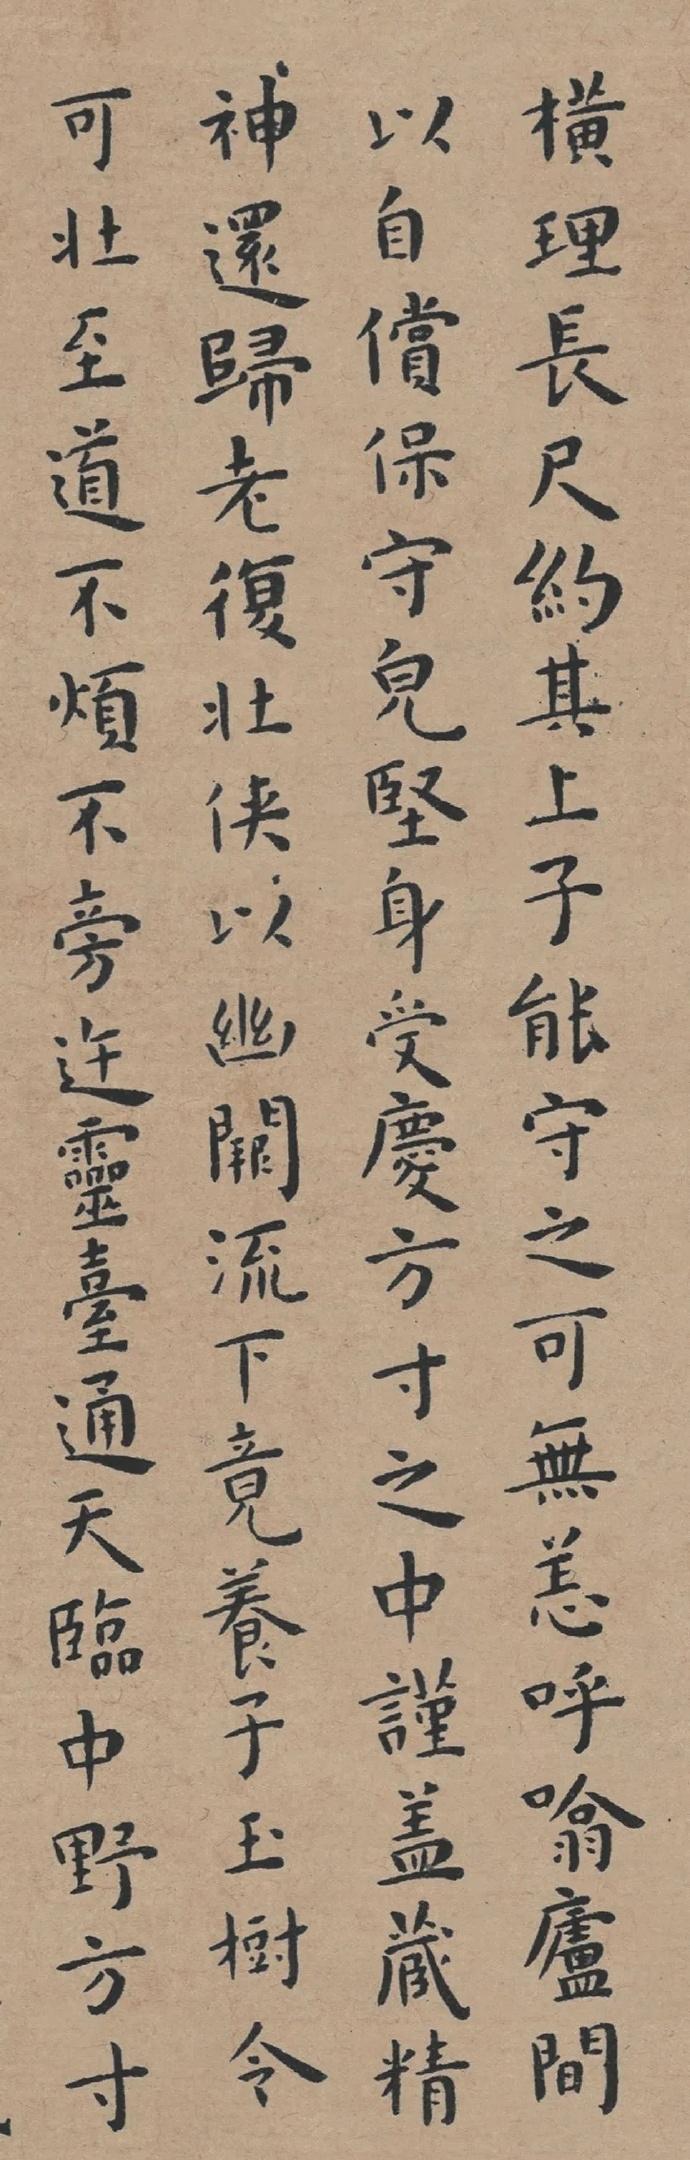 橫理長尺約其上子能守之可無恙呼噏廬間
以自償保守皃堅身受慶方寸之中謹盖藏精
神還歸老復壯俠以幽闕流下竟養子玉樹令
可壯至道不煩不旁迕靈臺通天臨中野方寸